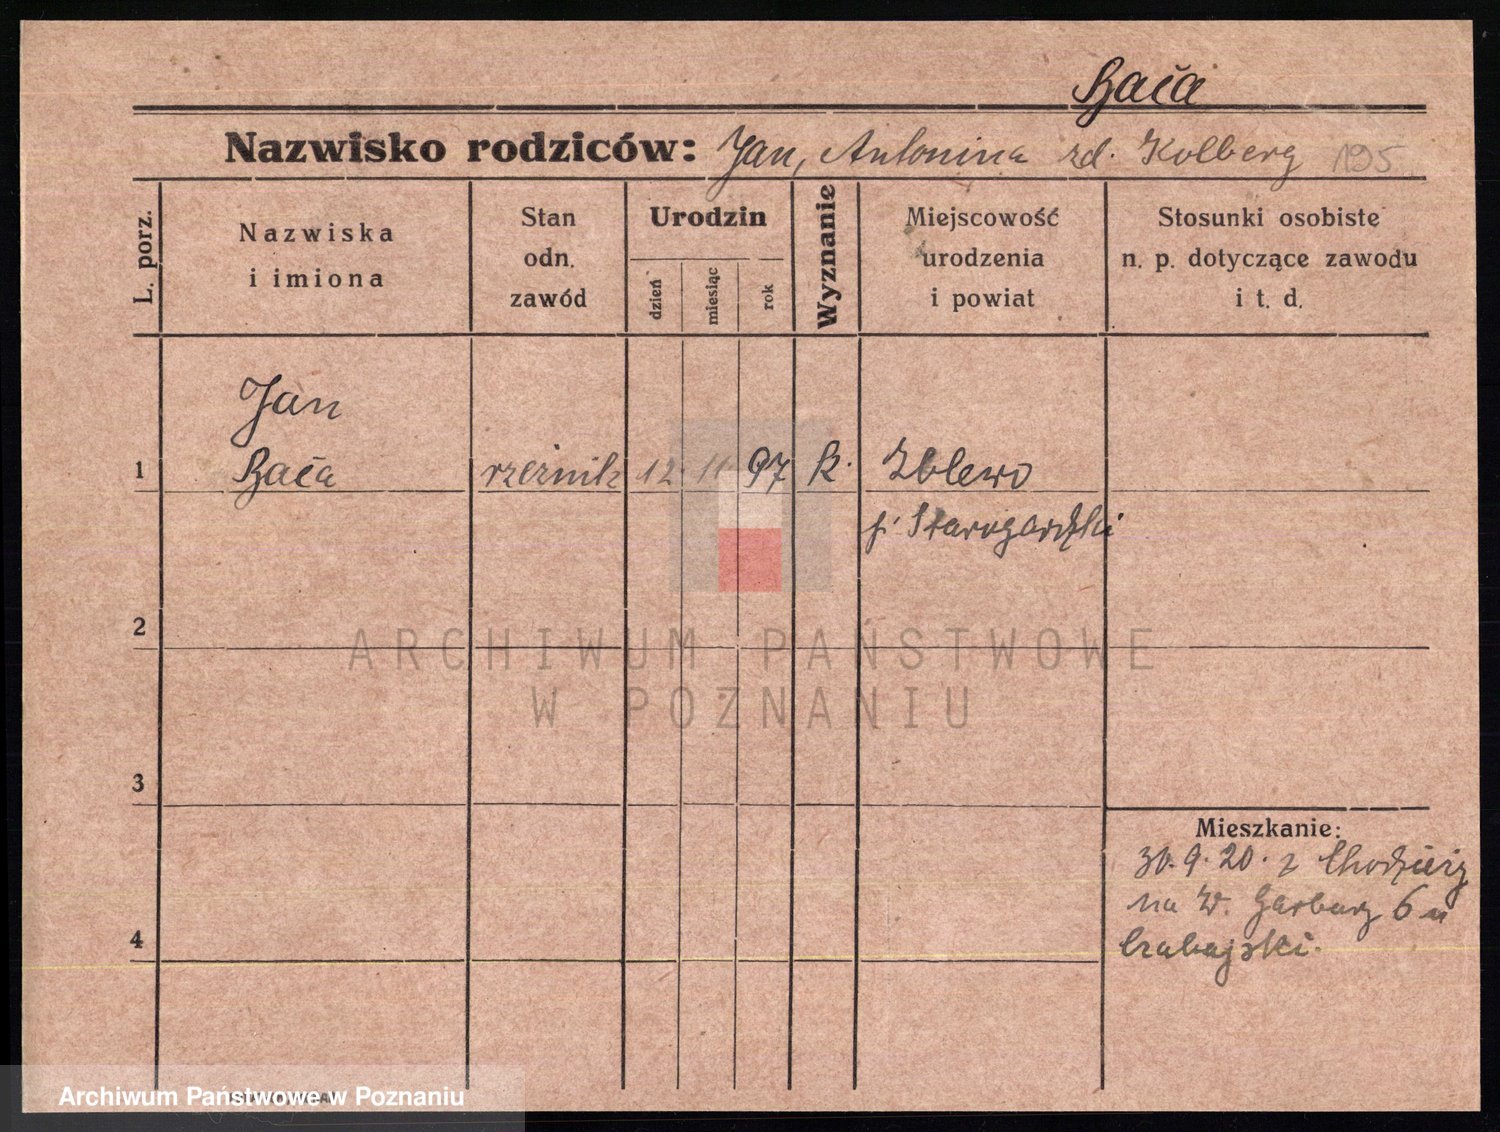 Bača
Nazwisko rodziców: Jan, Antonina zd. Kolberg 195
L. porz.
Nazwiska
i imiona
Stan
odn.
zawód
Urodzin
dzień
miesiąc
rok
Wyznanie
Miejscowość
urodzenia
i powiat
Stosunki osobiste
n. p. dotyczące zawodu
i t. d.
Jan
1 Bača rzeźnik 12 11 97 k. Zblewo
p. Starogardzki
2
ARCHIWUM PAŃSTWOWE
W POZNANIU
3
Mieszkanie:
30. 9. 20. z Chodzieży
na W. Garbary 6 u
4
Archiwum Państwowe w Poznaniu